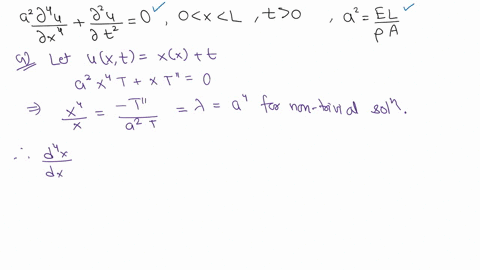 a² ∂⁴u/∂x⁴ + ∂²u/∂t² = 0 ✓, 0 < x < L, t > 0, a² = EL/ρA ✓
a) Let u(x,t) = x(x) + t
a² x⁴ T + x T" = 0
⇒ x⁴/x = -T"/a² T = λ = a⁴ for non-trivial solⁿ.
∴ d⁴x/dx